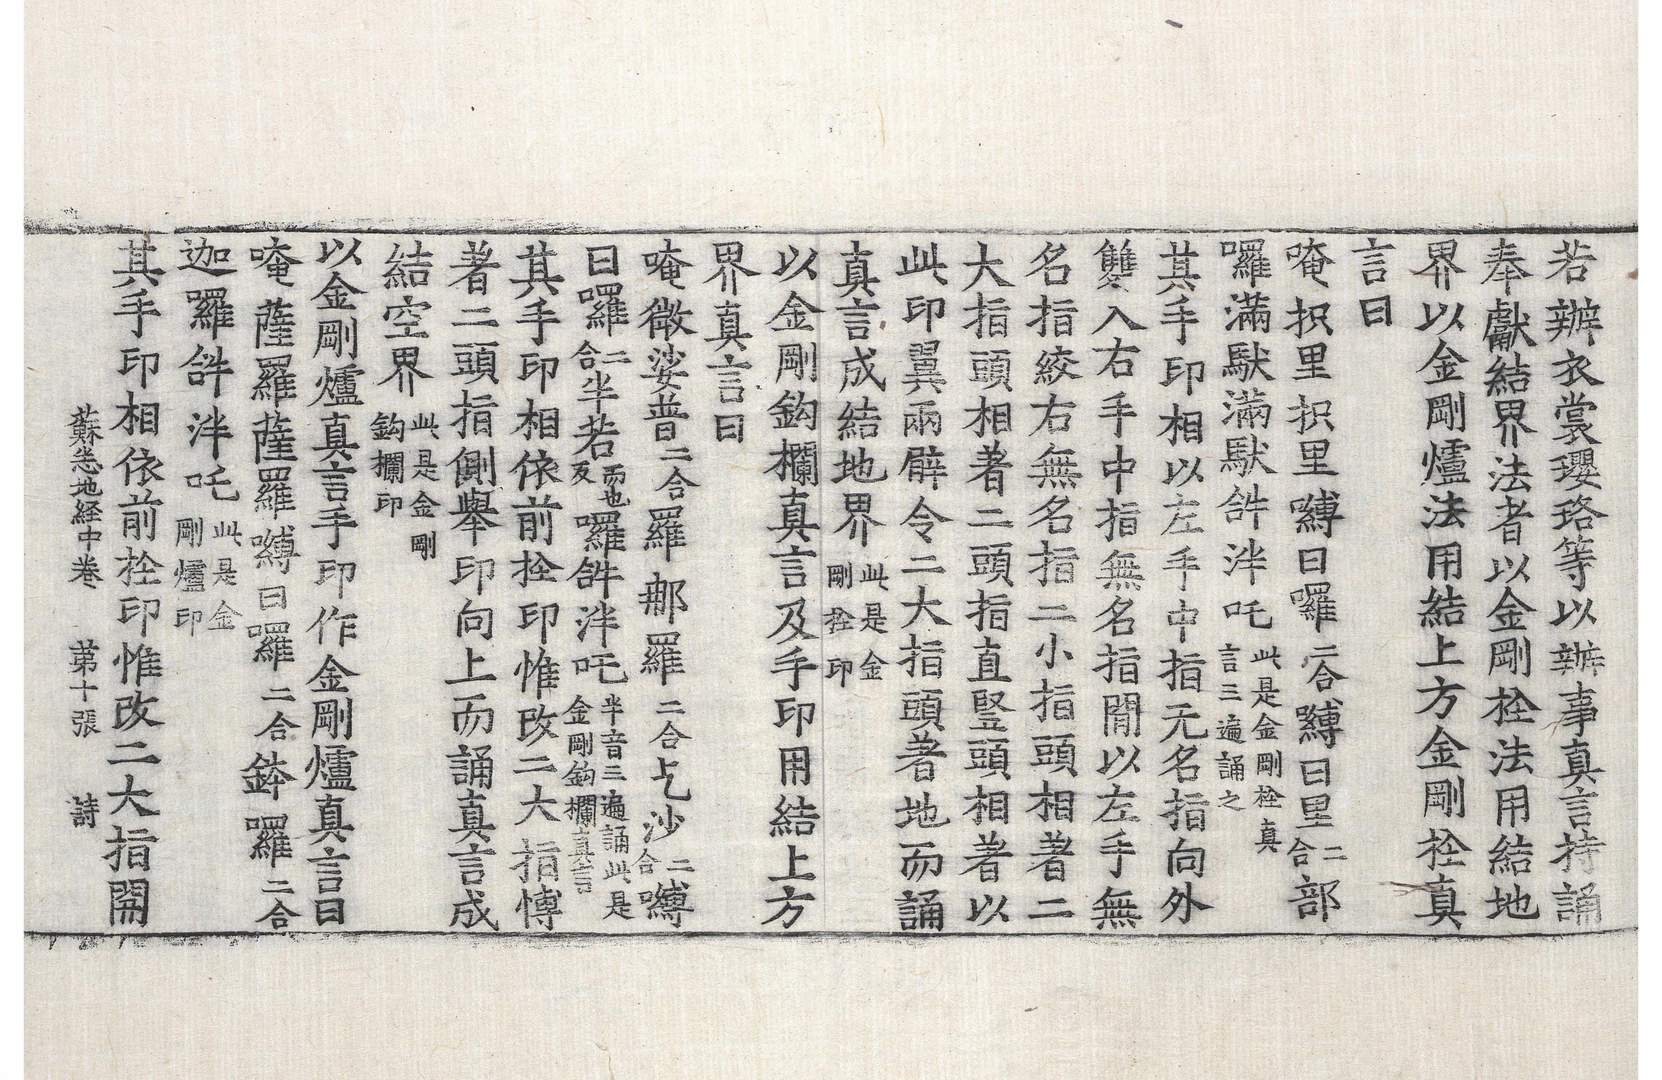 若辦衣裳瓔珞等以辦事真言持誦
奉獻結界法者以金剛栓法用結地
界以金剛爐法用結上方金剛栓真
言曰
唵枳里枳里嚩曰囉二合嚩曰里二合部
囉滿馱滿馱𤙖泮吒此是金剛栓真言三遍誦之
其手印相以左手中指无名指向外
雙入右手中指無名指間以左手無
名指絞右無名指二小指頭相著二
大指頭相著二頭指直豎頭相著以
此印翼兩臂令二大指頭著地而誦
真言成結地界此是金剛栓印
以金剛鈎欄真言及手印用結上方
界真言曰
唵微娑普二合羅那羅二合乞沙二合嚩
曰囉二合半若而也反囉𤙖泮吒半音三遍誦此是金剛鈎欄真言
其手印相依前栓印惟改二大指博
著二頭指側舉印向上而誦真言成
結空界此是金剛鈎欄印
以金剛爐真言手印作金剛爐真言曰
唵薩羅薩羅嚩曰囉二合鉢囉二合
迦囉𤙖泮吒此是金剛爐印
其手印相依前栓印惟改二大指開
蘇悉地経中卷 苐十張 詩